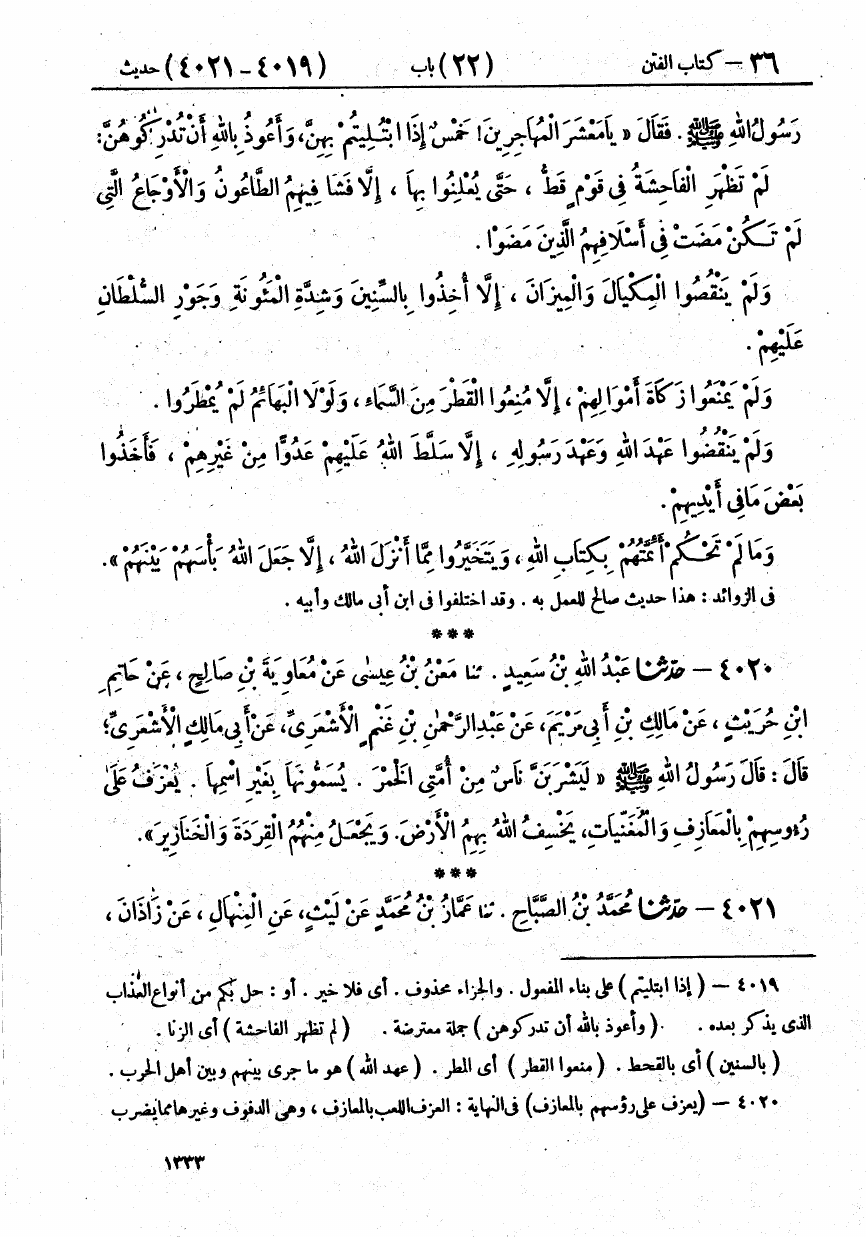 ٣٦ – كتاب الفتن (٢٢) باب (٤٠١٩ – ٤٠٢١) حديث
رَسُولُ اللهِ ﷺ . فَقَالَ « يَا مَعْشَرَ الْمُهَاجِرِينَ! خَمْسٌ إِذَا ابْتُلِيتُمْ بِهِنَّ، وَأَعُوذُ بِاللهِ أَنْ تُدْرِكُوهُنَّ:
لَمْ تَظْهَرِ الْفَاحِشَةُ فِي قَوْمٍ قَطُّ ، حَتَّى يُعْلِنُوا بِهَا ، إِلَّا فَشَا فِيهِمُ الطَّاعُونُ وَالْأَوْجَاعُ الَّتِي
لَمْ تَكُنْ مَضَتْ فِي أَسْلَافِهِمُ الَّذِينَ مَضَوْا .
وَلَمْ يَنْقُصُوا الْمِكْيَالَ وَالْمِيزَانَ ، إِلَّا أُخِذُوا بِالسِّنِينَ وَشِدَّةِ الْمَئُونَةِ وَجَوْرِ السُّلْطَانِ
عَلَيْهِمْ .
وَلَمْ يَمْنَعُوا زَكَاةَ أَمْوَالِهِمْ ، إِلَّا مُنِعُوا الْقَطْرَ مِنَ السَّمَاءِ ، وَلَوْلَا الْبَهَائِمُ لَمْ يُمْطَرُوا .
وَلَمْ يَنْقُضُوا عَهْدَ اللهِ وَعَهْدَ رَسُولِهِ ، إِلَّا سَلَّطَ اللهُ عَلَيْهِمْ عَدُوًّا مِنْ غَيْرِهِمْ ، فَأَخَذُوا
بَعْضَ مَا فِي أَيْدِيهِمْ .
وَمَا لَمْ تَحْكُمْ أَئِمَّتُهُمْ بِكِتَابِ اللهِ ، وَيَتَخَيَّرُوا مِمَّا أَنْزَلَ اللهُ ، إِلَّا جَعَلَ اللهُ بَأْسَهُمْ بَيْنَهُمْ ».
فى الزوائد : هذا حديث صالح للعمل به . وقد اختلفوا فى ابن أبى مالك وأبيه .
***
٤٠٢٠ – حَدَّثَنَا عَبْدُ اللهِ بْنُ سَعِيدٍ . ثنا مَعْنُ بْنُ عِيسَى عَنْ مُعَاوِيَةَ بْنِ صَالِحٍ ، عَنْ حَاتِمِ
ابْنِ حُرَيْثٍ ، عَنْ مَالِكِ بْنِ أَبِي مَرْيَمَ، عَنْ عَبْدِ الرَّحْمٰنِ بْنِ غَنْمٍ الْأَشْعَرِيِّ، عَنْ أَبِي مَالِكٍ الْأَشْعَرِيِّ؛
قَالَ : قَالَ رَسُولُ اللهِ ﷺ « لَيَشْرَبَنَّ نَاسٌ مِنْ أُمَّتِي الْخَمْرَ . يُسَمُّونَهَا بِغَيْرِ اسْمِهَا . يُعْزَفُ عَلَى
رُءُوسِهِمْ بِالْمَعَازِفِ وَالْمُغَنِّيَاتِ، يَخْسِفُ اللهُ بِهِمُ الْأَرْضَ. وَيَجْعَلُ مِنْهُمُ الْقِرَدَةَ وَالْخَنَازِيرَ».
***
٤٠٢١ – حَدَّثَنَا مُحَمَّدُ بْنُ الصَّبَّاحِ . ثنا عَمَّارُ بْنُ مُحَمَّدٍ عَنْ لَيْثٍ، عَنِ الْمِنْهَالِ ، عَنْ زَاذَانَ ،
٤٠١٩ – ( إذا ابتليتم ) على بناء المفعول . والجزاء محذوف . أى فلا خير . أو : حل بكم من أنواع العذاب
الذى يذكر بعده . ( وأعوذ بالله أن تدركوهن ) جملة معترضة . ( لم تظهر الفاحشة ) أى الزنا .
( بالسنين ) أى بالقحط . ( منعوا القطر ) أى المطر . ( عهد الله ) هو ما جرى بينهم وبين أهل الحرب .
٤٠٢٠ – (يعزف على رؤسهم بالمعازف) فى النهاية : العزف اللعب بالمعازف ، وهى الدفوف وغيرها مما يضرب
١٣٣٣